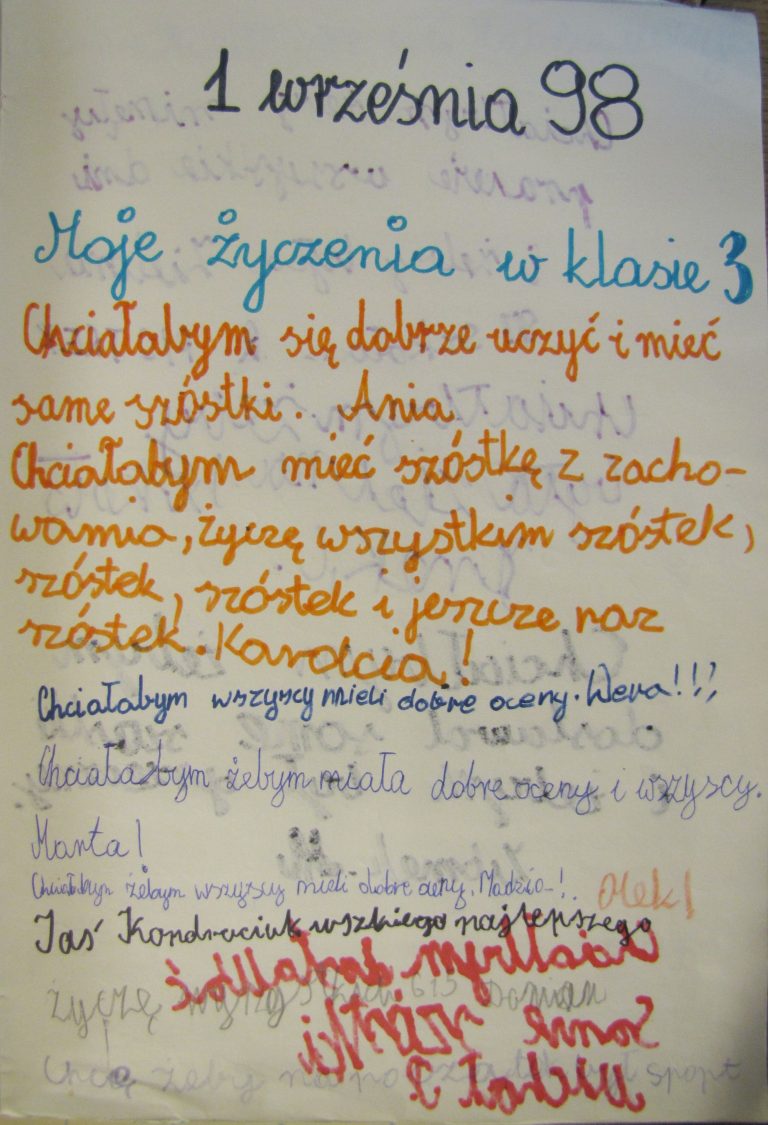 1 września 98
Moje życzenia w klasie 3
Chciałabym się dobrze uczyć i mieć
same szóstki. Ania
Chciałabym mieć szóstkę z zacho-
wania, życzę wszystkim szóstek,
szóstek, szóstek i jeszcze raz
szóstek. Karolcia!
Chciałabym wszyscy mieli dobre oceny. Wera!!!
Chciałabym żebym miała dobre oceny i wszyscy.
Marta!
Chciałabym żebym wszyscy mieli dobre oceny. Madzia-! Olek!
Jaś Kondraciuk wszkiego najlepszego
życzę Damian
Chcę żeby